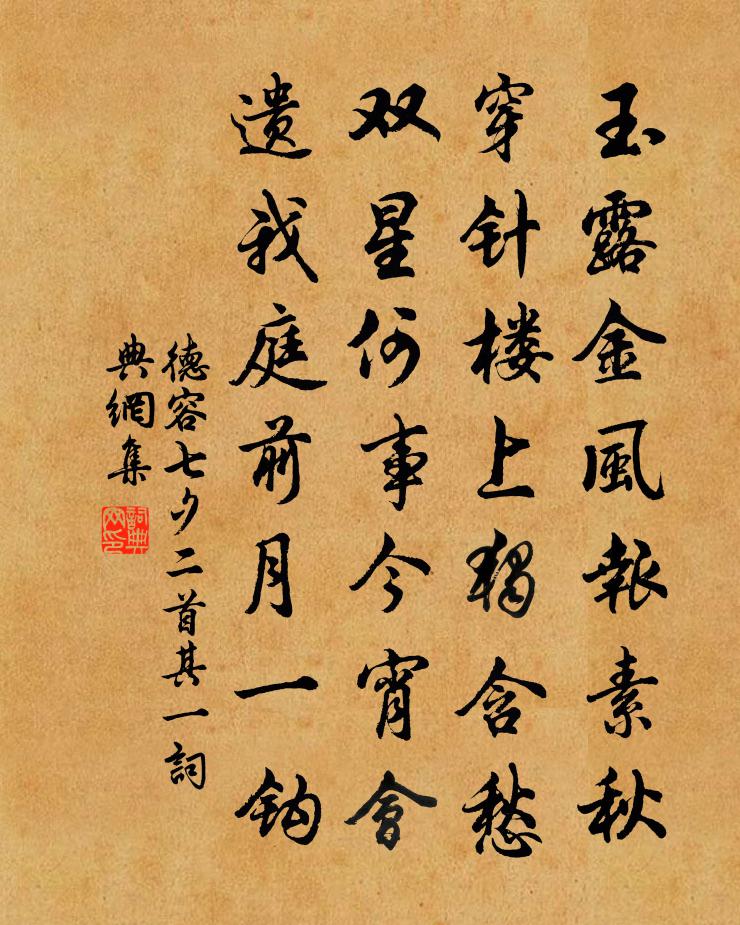 玉露金風報素秋
穿针楼上獨含愁
双星何事今宵會
遗我庭前月一钩
德容七夕二首其一詞
典網集
詞典
网印